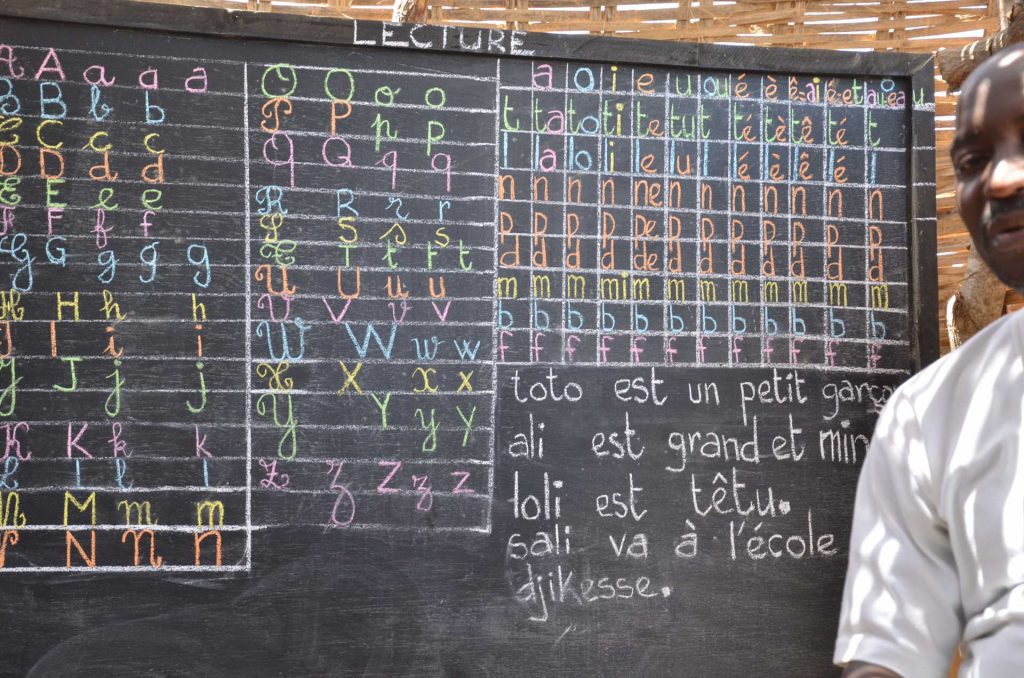 LECTURE
A A a a a
B B b b
C C c c
D D d d
E E e e
F F f f
G G g g g
H H h h
I I i i
J J j j
K K k k
L l l l
M M m m
N N n n
O O o o
P P p p
Q Q q q
R R r r
S S s s
T T t t t
U U u u
V V v v
W W w w
X X x x
Y Y y y
Z z Z z z
a o i e u ou é è ê ai
t ta to ti te tu t té tè tê té t
l la lo li le lu l lé lè lê lé l
n n n n ne n n n n n n n
p p p p pe p p p p p p p
d d d d de d d d d d d d
m m m mi m m m m m m m m
b b b b b b b b b b b b
f f f f f f f f f f f f
toto est un petit
ali est grand et
loli est têtu.
sali va à l'école
djikesse.